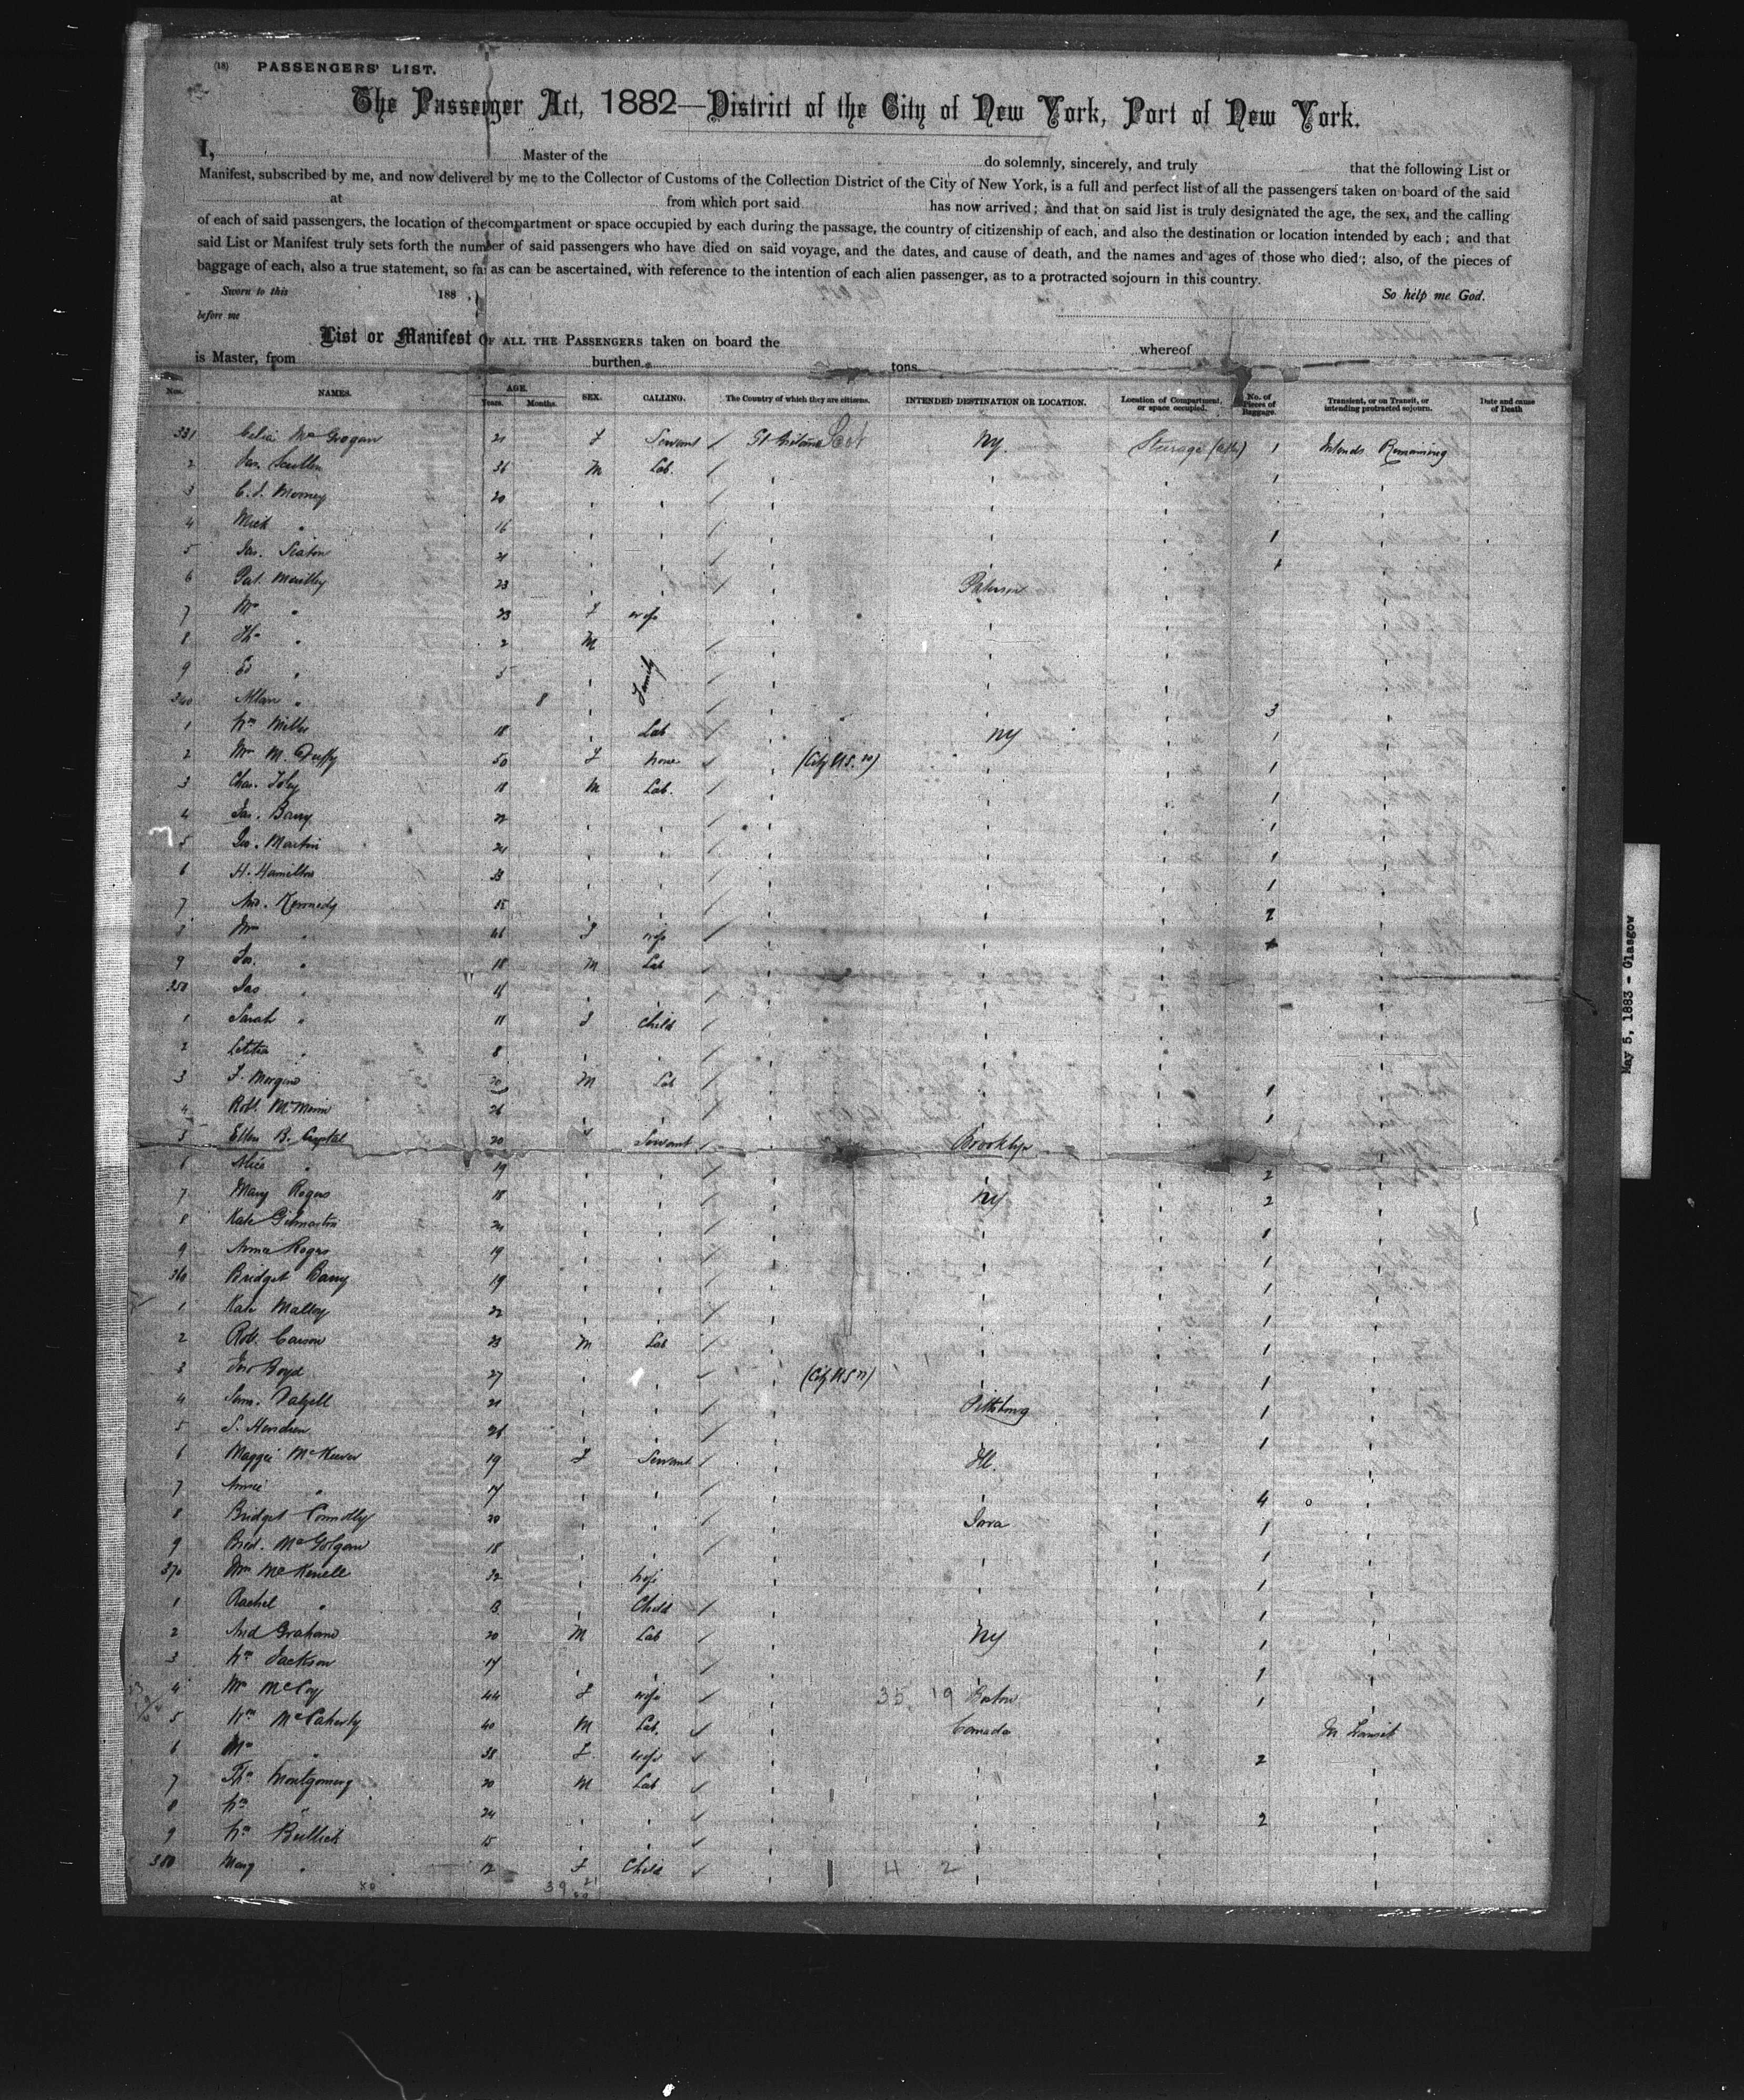 (18) PASSENGERS' LIST.
The Passenger Act, 1882—District of the City of New York, Port of New York.
I, Master of the do solemnly, sincerely, and truly that the following List or
Manifest, subscribed by me, and now delivered by me to the Collector of Customs of the Collection District of the City of New York, is a full and perfect list of all the passengers taken on board of the said
at from which port said has now arrived; and that on said list is truly designated the age, the sex, and the calling
of each of said passengers, the location of the compartment or space occupied by each during the passage, the country of citizenship of each, and also the destination or location intended by each; and that
said List or Manifest truly sets forth the number of said passengers who have died on said voyage, and the dates, and cause of death, and the names and ages of those who died; also, of the pieces of
baggage of each, also a true statement, so far as can be ascertained, with reference to the intention of each alien passenger, as to a protracted sojourn in this country.
Sworn to this 188 . So help me God.
before me
List or Manifest OF ALL THE PASSENGERS taken on board the whereof
is Master, from burthen tons
Nos. NAMES. AGE. Years. Months. SEX. CALLING. The Country of which they are citizens. INTENDED DESTINATION OR LOCATION. Location of Compartment, or space occupied. No. of Pieces of Baggage. Transient, or on Transit, or intending protracted sojourn. Date and cause of Death
331 Celia McGrogan 21 F Servant / Gt Britain Scot NY. Steerage 1 Intends Remaining
2 Jas. Scullin 36 M Lab. / 1
3 20 /
4 Mich " 16 / 1
5 Jas. Seaton 21 / 1
6 Pat. 23 / Paterson
7 Mrs " 23 F wife
8 Ths " 2 M /
9 Ed " 5 Family /
340 Allan " 8 / 3
1 Wm Miller 18 Lab / NY 1
2 Mrs M. Duffy 50 F None / 1
3 Chas. Foley 18 M Lab. / 1
4 Jas. Barry 22 / 1
5 Geo. Martin 21 / 1
6 H. Hamilton 23 / 1
7 And. Kennedy / 2
8 Mrs " 46 F wife /
9 Jos. " 18 M Lab /
350 Jas " 16 /
1 Sarah " 11 F Child /
2 Letitia " 8 /
3 20 M Lab / 1
4 Robt. 26 / 1
5 Ellen B. 20 Servant / Brooklyn
6 Alice " 19 / 2
7 Mary Rogers 18 / NY 2
8 Kate Gilmartin 21 / 1
9 Anna Rogers 19 / 1
360 Bridget Barry 19 / 1
1 Kate Malloy 22 / 1
2 Rob. Carson 23 M Lab / 1
3 Jno Boyd 27 / 1
4 Sam. Dalzell 21 / Pittsburg 1
5 26 / 1
6 Maggie McKeever 19 F Servant / Ill.
7 Annie " 17 / 4
8 Bridget Connolly 20 / Iowa 1
9 Brid. McGolgan 18 / 1
370 Mrs 32 wife 1
1 Rachel " 13 Child / 1
2 And Graham 20 M Lab / NY 1
3 Wm Jackson 17 / 1
4 Mrs McCoy 44 F wife / 35 19 Boston 1
5 Wm McCaherty 40 M Lab. / Canada In Transit
6 Mrs " 38 F wife / 2
7 Ths Montgomery 20 M Lab /
8 Wm " 24 / 2
9 Wm 15 /
380 Mary " 12 F Child / 4 2
39
May 5, 1883 - Glasgow